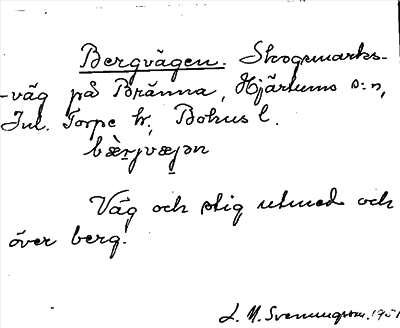 Bergvägen. Skogsmarks-
-väg på Bränna, Hjärtums s:n,
Inl. Torpe hr, Bohus l.
bæ̀rjvæjən
Väg och stig utmed och
över berg.
L. M. Svenungsson. 1951